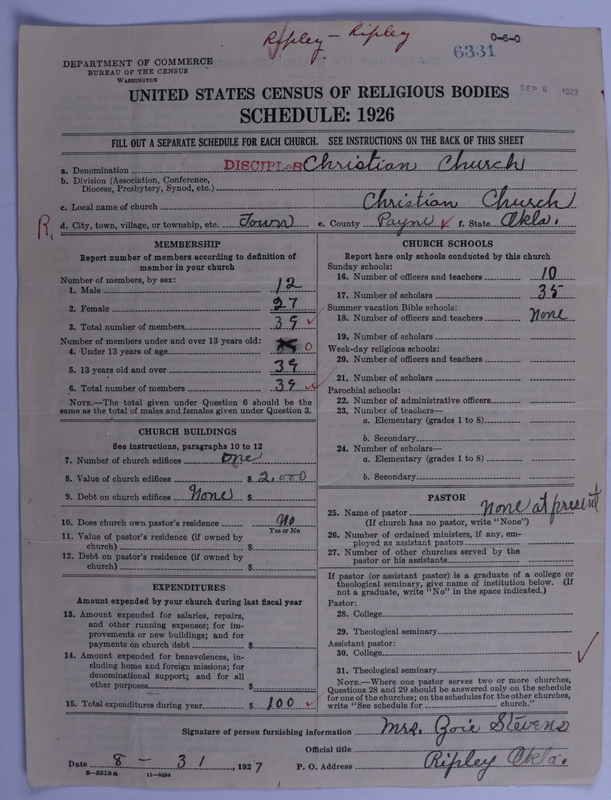 Ripley - Ripley
0-6-0
6331
DEPARTMENT OF COMMERCE
BUREAU OF THE CENSUS
WASHINGTON
SEP 6 1927
UNITED STATES CENSUS OF RELIGIOUS BODIES
SCHEDULE: 1926
FILL OUT A SEPARATE SCHEDULE FOR EACH CHURCH. SEE INSTRUCTIONS ON THE BACK OF THIS SHEET
a. Denomination DISCIPLES Christian Church
b. Division (Association, Conference,
Diocese, Presbytery, Synod, etc.)
c. Local name of church Christian Church
R. d. City, town, village, or township, etc. Town e. County Payne ✓ f. State Okla.
MEMBERSHIP
Report number of members according to definition of
member in your church
Number of members, by sex:
1. Male 12
2. Female 27
3. Total number of members 39 ✓
Number of members under and over 13 years old:
4. Under 13 years of age 0
5. 13 years old and over 39
6. Total number of members 39 ✓
NOTE.—The total given under Question 6 should be the
same as the total of males and females given under Question 3.
CHURCH BUILDINGS
See instructions, paragraphs 10 to 12
7. Number of church edifices one
8. Value of church edifices $ 2,000
9. Debt on church edifices None $
10. Does church own pastor's residence No
Yes or No
11. Value of pastor's residence (if owned by
church) $
12. Debt on pastor's residence (if owned by
church) $
EXPENDITURES
Amount expended by your church during last fiscal year
13. Amount expended for salaries, repairs,
and other running expenses; for im-
provements or new buildings; and for
payments on church debt $
14. Amount expended for benevolences, in-
cluding home and foreign missions; for
denominational support; and for all
other purposes $
15. Total expenditures during year $ 100 ✓
CHURCH SCHOOLS
Report here only schools conducted by this church
Sunday schools:
16. Number of officers and teachers 10
17. Number of scholars 35
Summer vacation Bible schools:
18. Number of officers and teachers None
19. Number of scholars
Week-day religious schools:
20. Number of officers and teachers
21. Number of scholars
Parochial schools:
22. Number of administrative officers
23. Number of teachers—
a. Elementary (grades 1 to 8)
b. Secondary
24. Number of scholars—
a. Elementary (grades 1 to 8)
b. Secondary
PASTOR
25. Name of pastor None at present
(If church has no pastor, write "None")
26. Number of ordained ministers, if any, em-
ployed as assistant pastors
27. Number of other churches served by the
pastor or his assistants
If pastor (or assistant pastor) is a graduate of a college or
theological seminary, give name of institution below. (If
not a graduate, write "No" in the space indicated.)
Pastor:
28. College
29. Theological seminary
Assistant pastor:
30. College ✓
31. Theological seminary
NOTE.—Where one pastor serves two or more churches,
Questions 28 and 29 should be answered only on the schedule
for one of the churches; on the schedules for the other churches,
write "See schedule for church."
Signature of person furnishing information Mrs. Zoie Stevens
Official title
Date 8 - 31, 1927 P. O. Address Ripley Okla.
8-5518a 11-9054